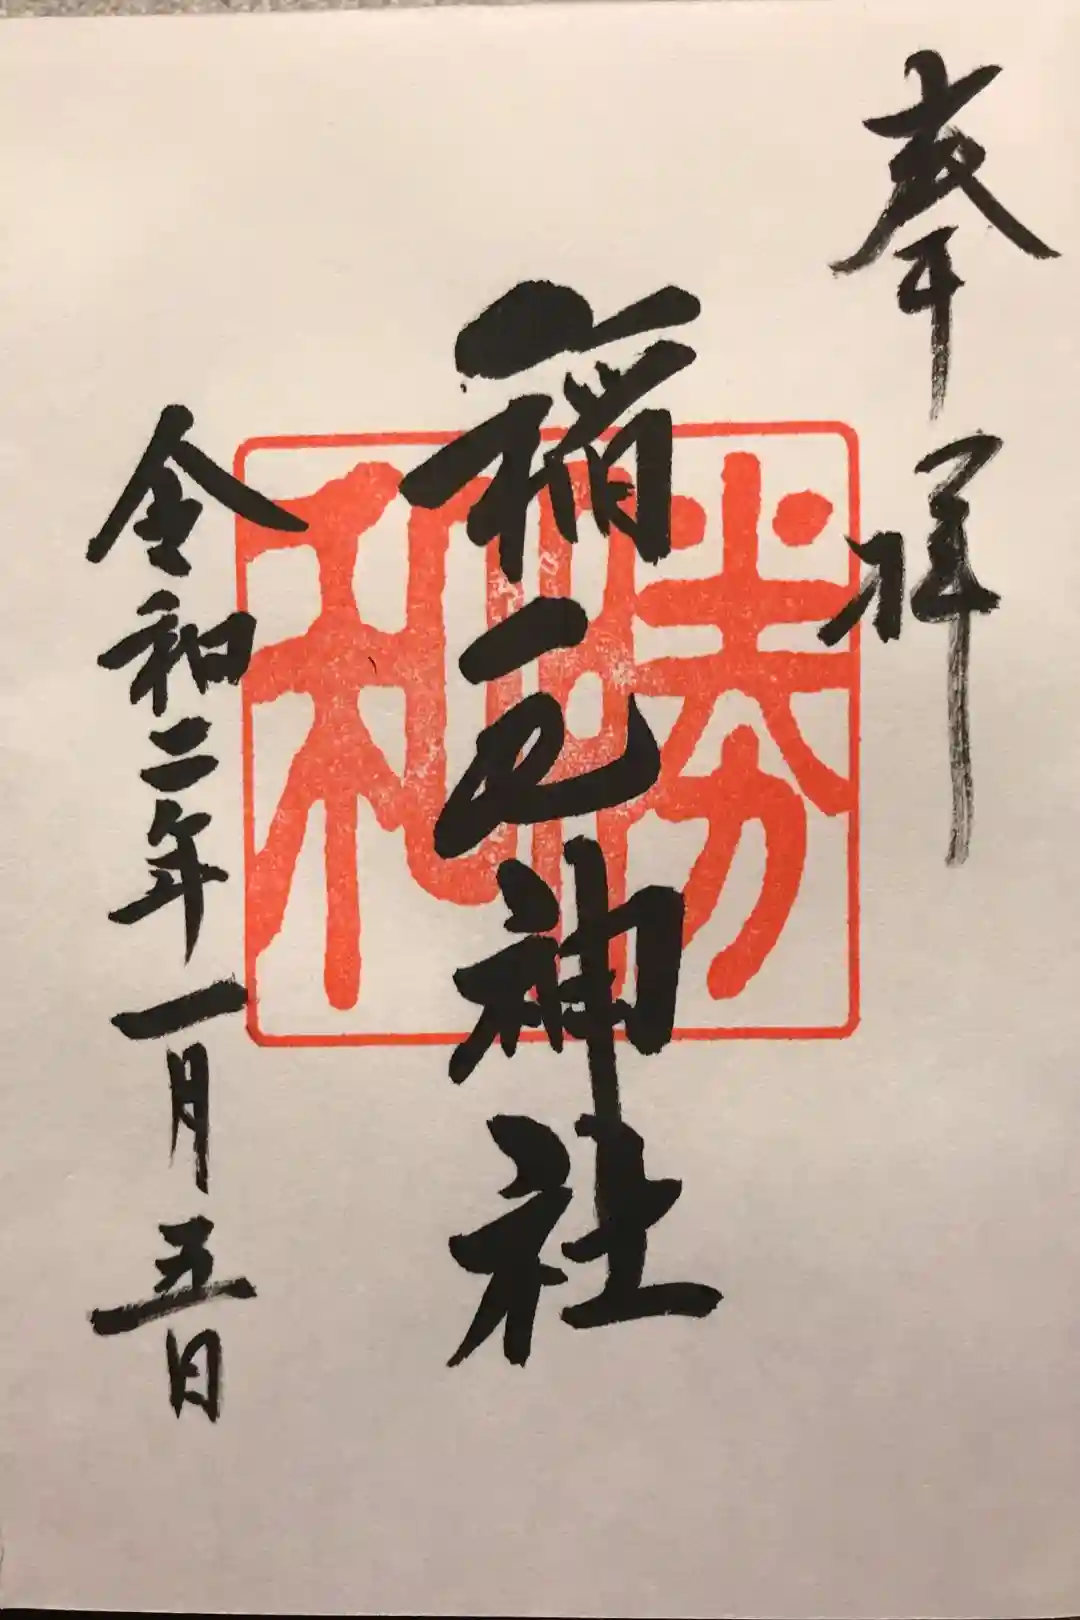 奉拝
稲毛神社
令和二年一月五日
勝